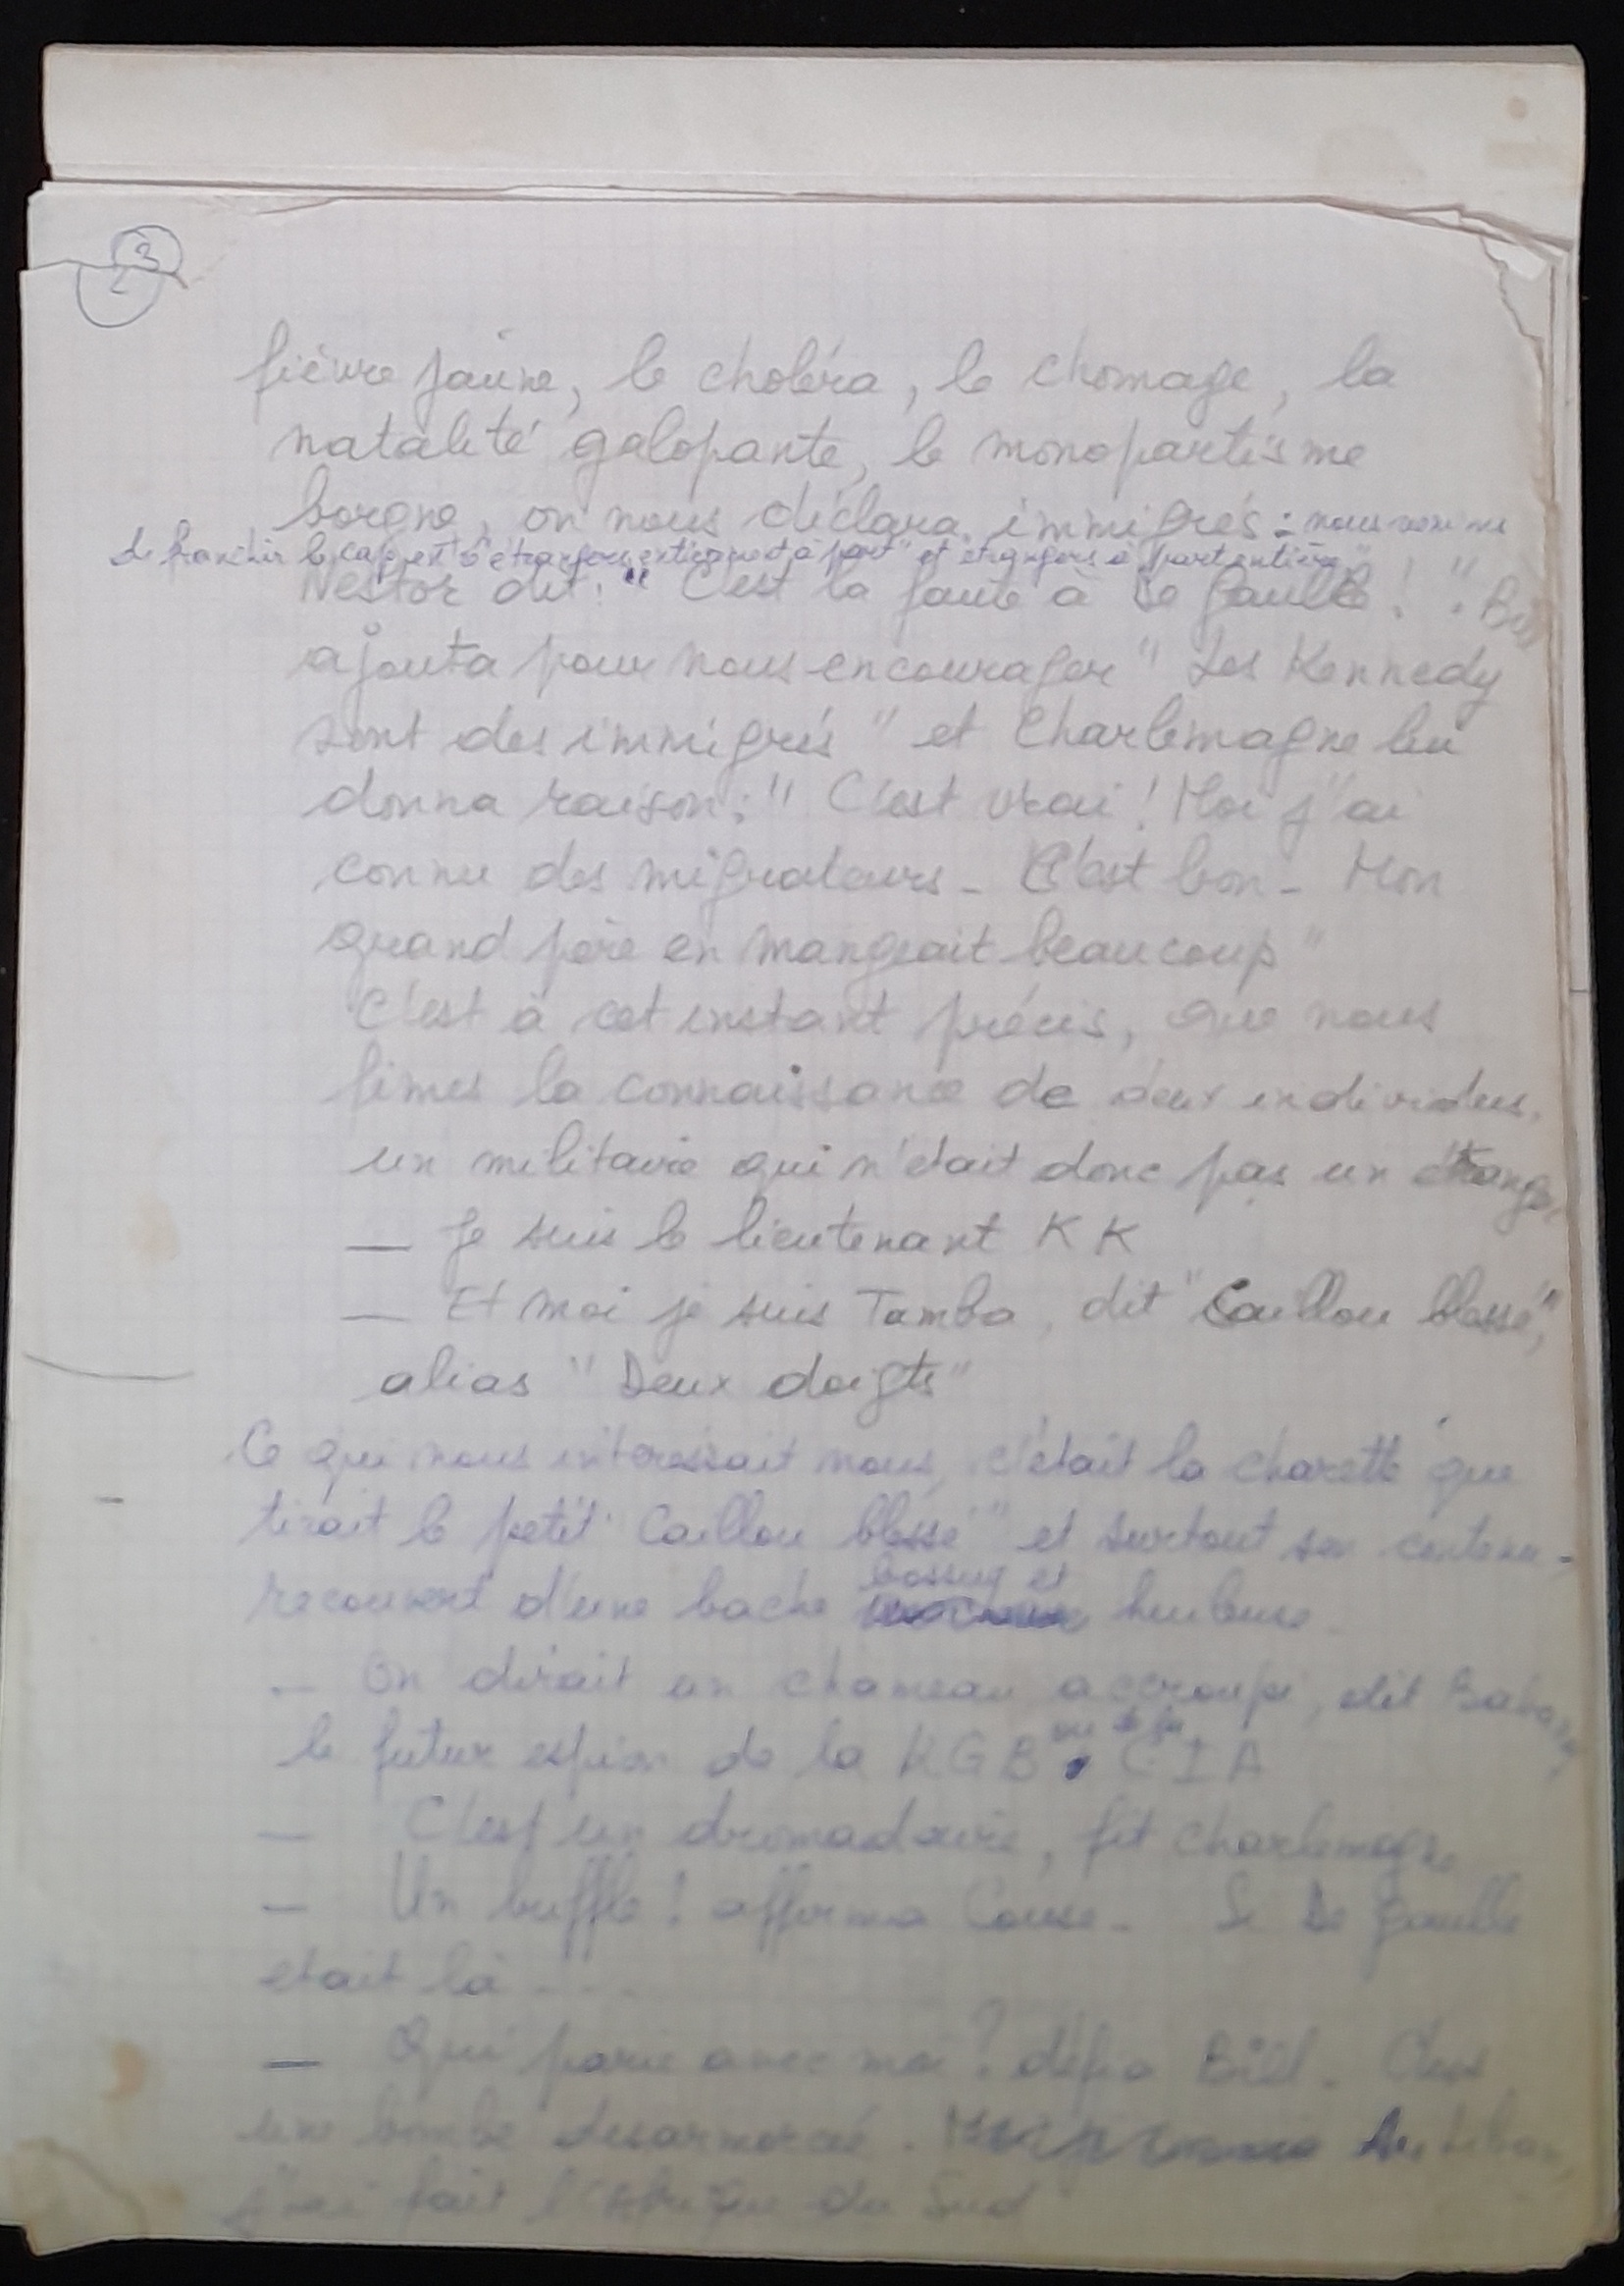 3
2
fièvre jaune, le choléra, le chomage, la
natalité galopante, le monopartisme
borgne, on nous déclara immigrés : nous venions
de franchir le cap
"étrangers entièrement à part" et étrangers à part entière"
Nestor dit : "C'est la faute à De Gaulle ! ". Bill
ajouta pour nous encourager " Les Kennedy
sont des immigrés " et Charlemagne lui
donna raison : " C'est vrai ! Moi j'ai
connu des migrateurs - C'est bon - Mon
grand père en mangeait beaucoup "
C'est à cet instant précis, que nous
fimes la connaissance de deux individus,
un militaire qui n'était donc pas un étranger
— Je suis le lieutenant KK
— Et moi je suis Tamba, dit "Caillou blessé",
alias " Deux doigts"
Ce qui nous interessait nous, c'était la charette que
tirait le petit "Caillou blessé" et surtout son contenu -
recouvert d'une bache bossue et huileuse.
— On dirait un chameau accroupi, dit
le futur espion de la KGB ou de la CIA
— C'est un dromadaire, fit Charlemagne
— Un buffle ! affirma - Si De Gaulle
etait là ....
— Qui parie avec moi ? défia Bill. C'est
une bombe desarmorcé. Liban,
j'ai fait l'Afrique du Sud